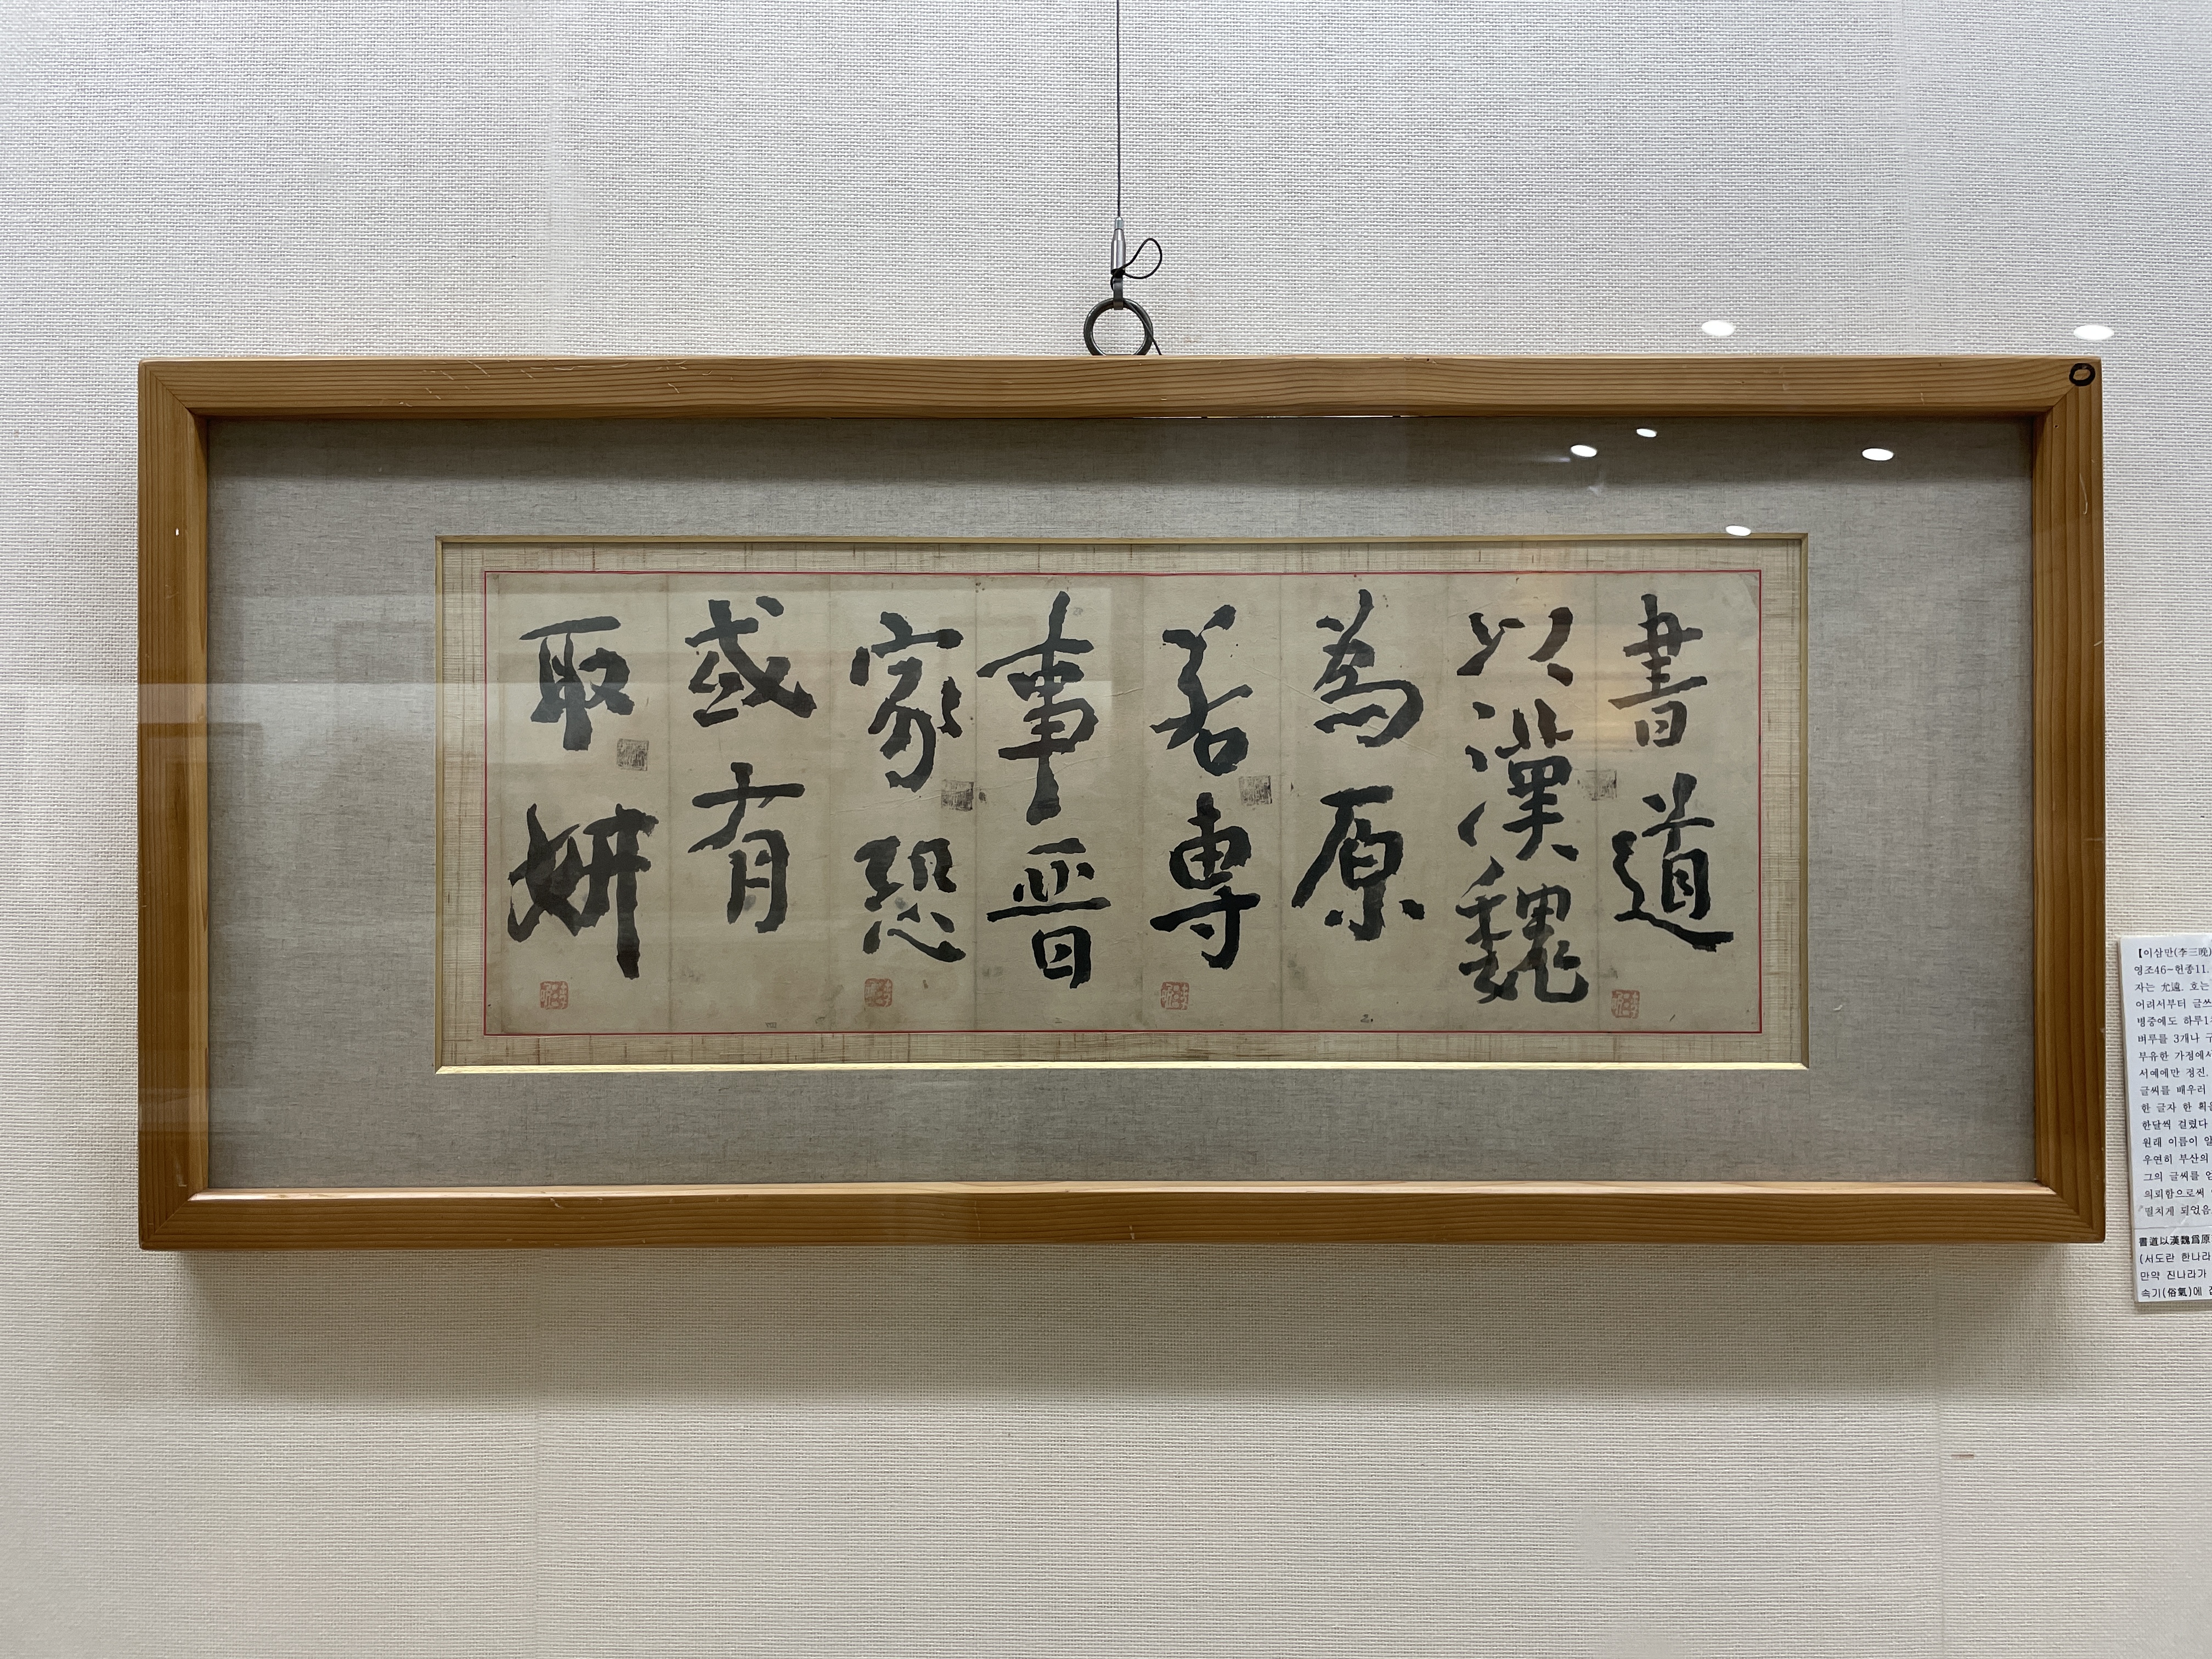 書道
以漢魏
為原
若專
事晋
家恐
或有
取妍
【이삼만(李三晩)
영조46-헌종11.
자는 允遠. 호는
어려서부터 글쓰
병중에도 하루1
벼루를 3개나 구
부유한 가정에서
서예에만 정진.
글씨를 배우러
한 글자 한 획을
한달씩 걸렸다
원래 이름이 알
우연히 부산의
그의 글씨를 얻
의뢰함으로써
떨치게 되었음
書道以漢魏爲原
(서도란 한나라
만약 진나라가
속기(俗氣)에